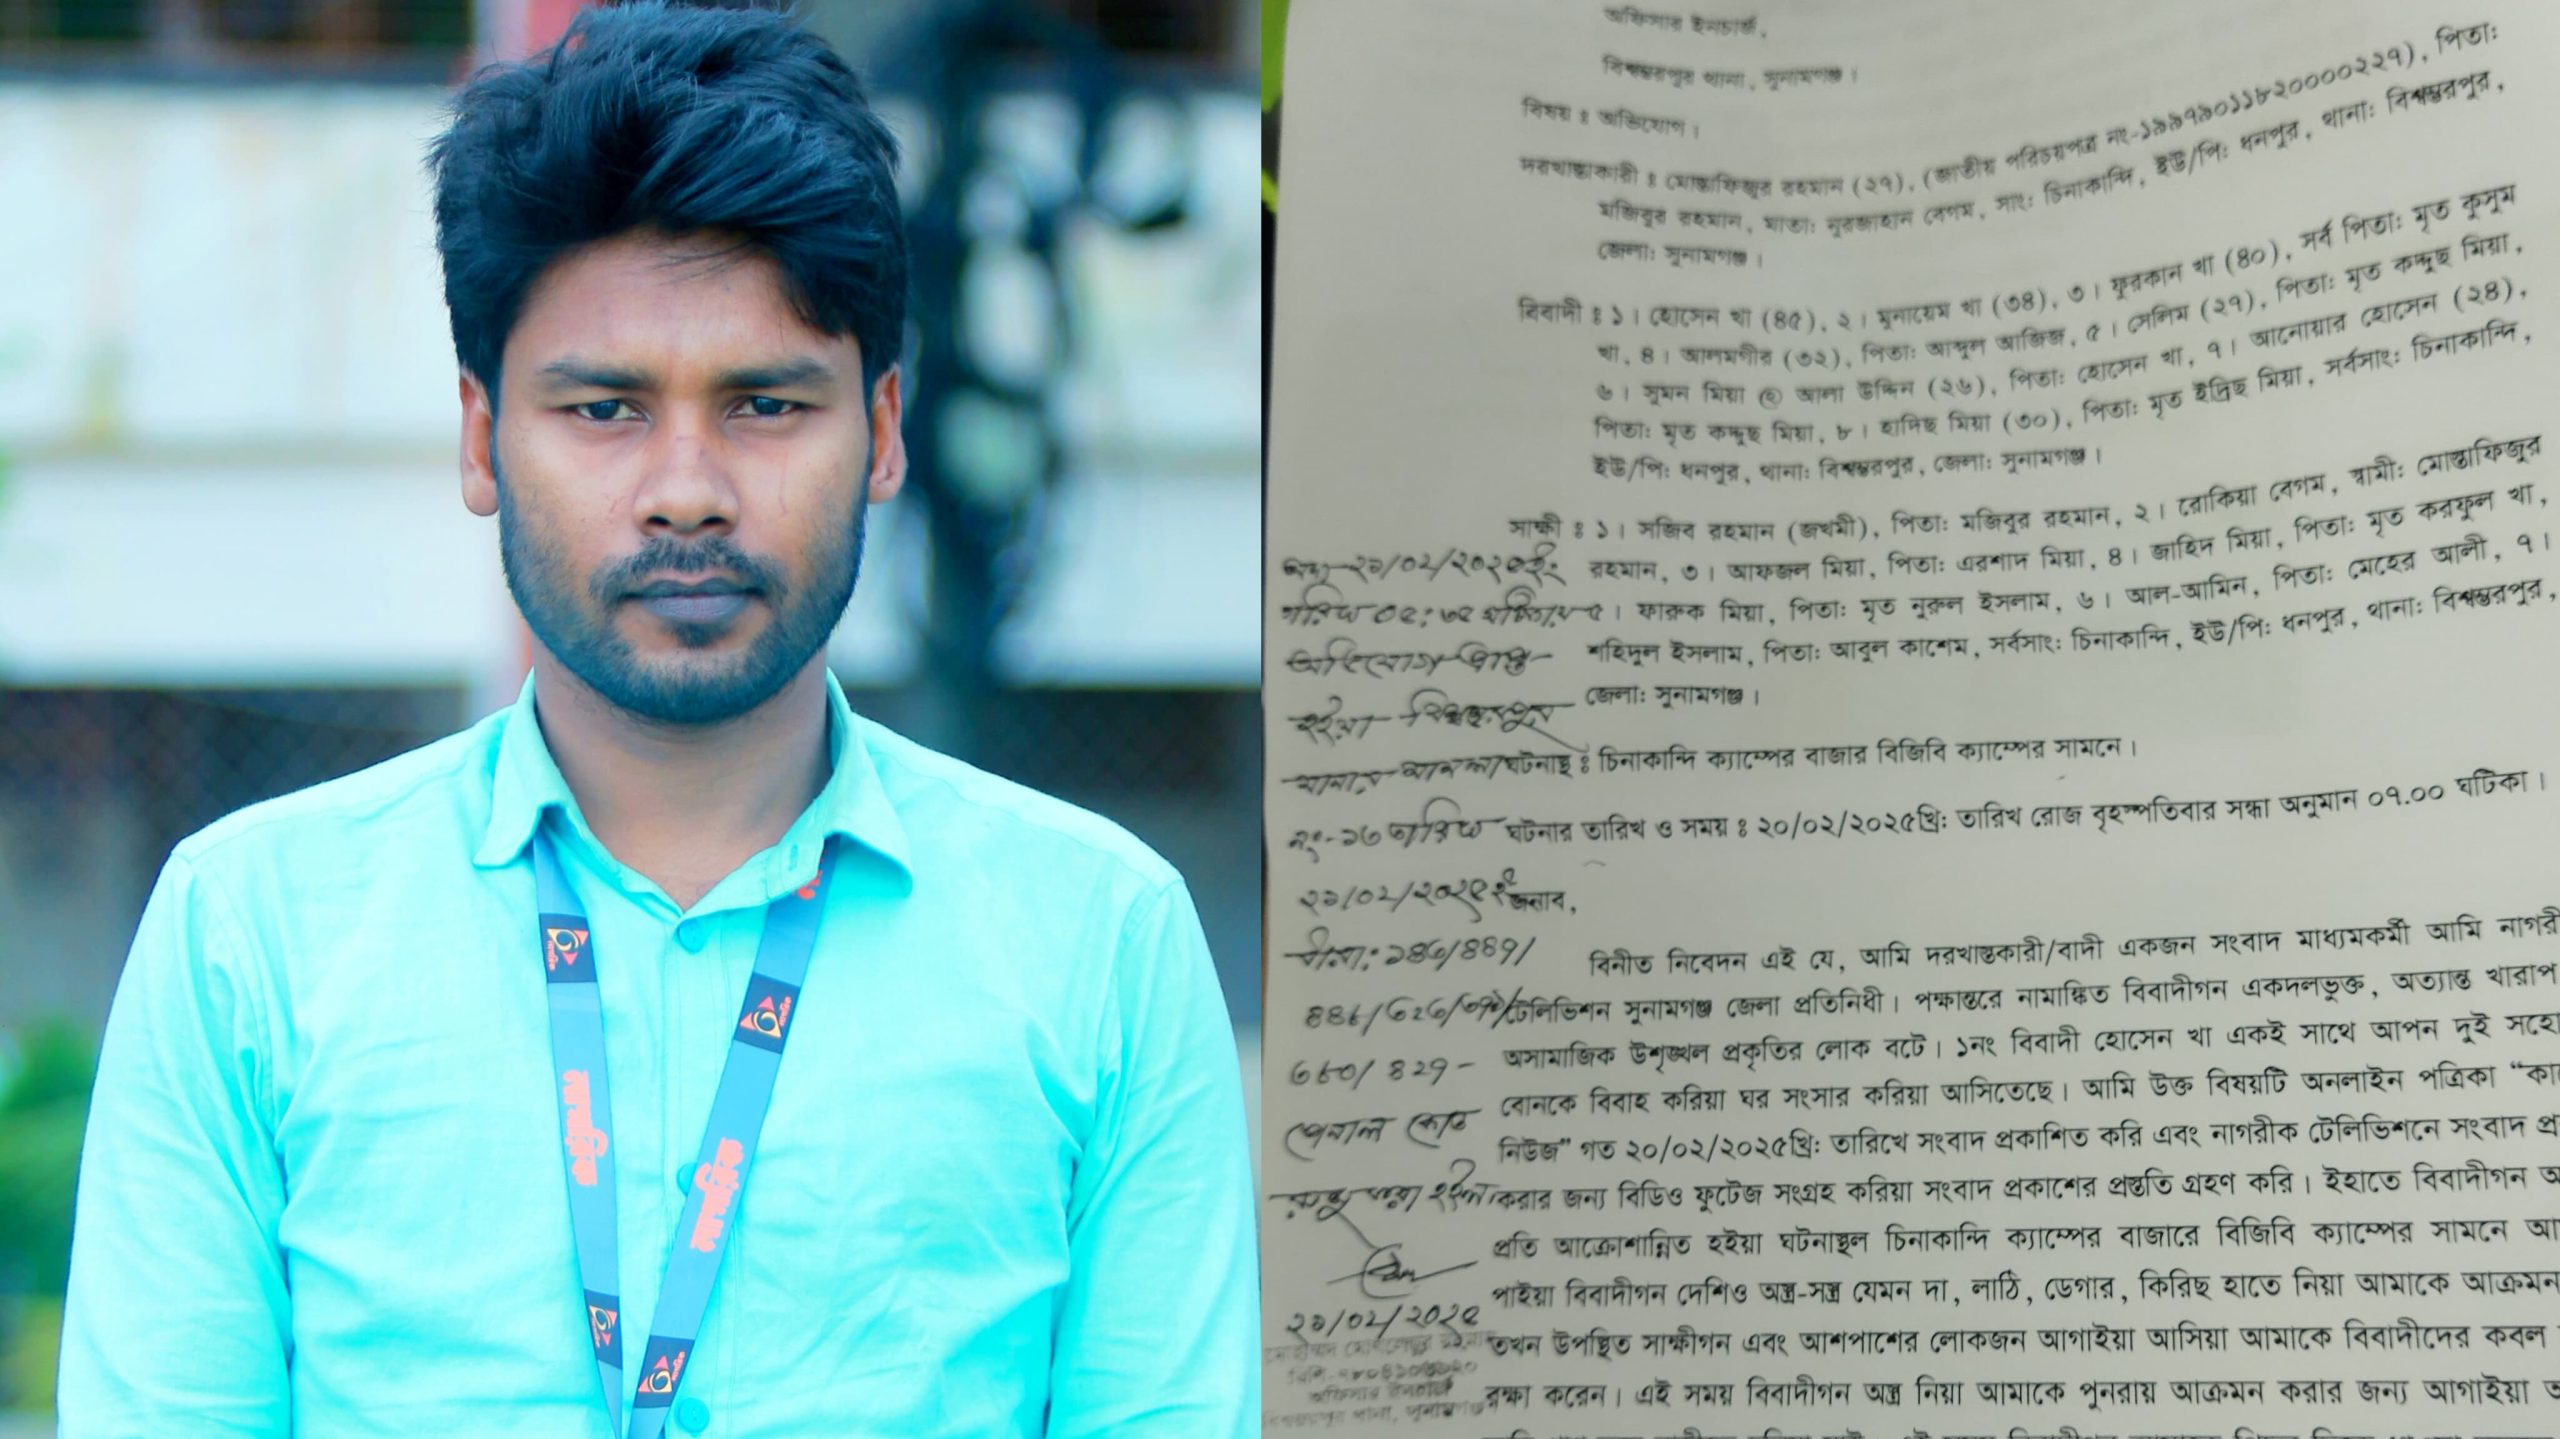 নাগরিক
নাগরিক
অফিসার ইনচার্জ,
বিশ্বম্ভরপুর থানা, সুনামগঞ্জ।
বিষয় ঃ অভিযোগ।
দরখাস্তকারী ঃ মোস্তাফিজুর রহমান (২৭), (জাতীয় পরিচয়পত্র নং-১৯৯৭৯০১১৮২০০০০২২৭), পিতাঃ
মজিবুর রহমান, মাতাঃ নুরজাহান বেগম, সাং: চিনাকান্দি, ইউ/পি: ধনপুর, থানা: বিশ্বম্ভরপুর,
জেলা: সুনামগঞ্জ।
বিবাদী ঃ ১। হোসেন খা (৪৫), ২। মুনায়েম খা (৩৪), ৩। ফুরকান খা (৪০), সর্ব পিতা: মৃত কুসুম
খা, ৪। আলমগীর (৩২), পিতা: আব্দুল আজিজ, ৫। সেলিম (২৭), পিতা: মৃত কদ্দুছ মিয়া,
৬। সুমন মিয়া @ আলা উদ্দিন (২৬), পিতা: হোসেন খা, ৭। আনোয়ার হোসেন (২৪),
পিতা: মৃত কদ্দুছ মিয়া, ৮। হাদিছ মিয়া (৩০), পিতা: মৃত ইদ্রিছ মিয়া, সর্বসাং: চিনাকান্দি,
ইউ/পি: ধনপুর, থানা: বিশ্বম্ভরপুর, জেলা: সুনামগঞ্জ।
সাক্ষী ঃ ১। সজিব রহমান (জখমী), পিতা: মজিবুর রহমান, ২। রোকিয়া বেগম, স্বামী: মোস্তাফিজুর
রহমান, ৩। আফজল মিয়া, পিতা: এরশাদ মিয়া, ৪। জাহিদ মিয়া, পিতা: মৃত করফুল খা,
৫। ফারুক মিয়া, পিতা: মৃত নুরুল ইসলাম, ৬। আল-আমিন, পিতা: মেহের আলী, ৭।
শহিদুল ইসলাম, পিতা: আবুল কাশেম, সর্বসাং: চিনাকান্দি, ইউ/পি: ধনপুর, থানা: বিশ্বম্ভরপুর,
জেলা: সুনামগঞ্জ।
ঘটনাস্থ ঃ চিনাকান্দি ক্যাম্পের বাজার বিজিবি ক্যাম্পের সামনে।
ঘটনার তারিখ ও সময় ঃ ২০/০২/২০২৫খ্রি: তারিখ রোজ বৃহস্পতিবার সন্ধা অনুমান ০৭.০০ ঘটিকা।
জনাব,
বিনীত নিবেদন এই যে, আমি দরখাস্তকারী/বাদী একজন সংবাদ মাধ্যমকর্মী আমি নাগরী
টেলিভিশন সুনামগঞ্জ জেলা প্রতিনিধী। পক্ষান্তরে নামাঙ্কিত বিবাদীগন একদলভুক্ত, অত্যান্ত খারাপ
অসামাজিক উশৃঙ্খল প্রকৃতির লোক বটে। ১নং বিবাদী হোসেন খা একই সাথে আপন দুই সহো
বোনকে বিবাহ করিয়া ঘর সংসার করিয়া আসিতেছে। আমি উক্ত বিষয়টি অনলাইন পত্রিকা “কা
নিউজ” গত ২০/০২/২০২৫খ্রি: তারিখে সংবাদ প্রকাশিত করি এবং নাগরীক টেলিভিশনে সংবাদ প্র
করার জন্য বিডিও ফুটেজ সংগ্রহ করিয়া সংবাদ প্রকাশের প্রস্তুতি গ্রহণ করি। ইহাতে বিবাদীগন আ
প্রতি আক্রোশান্নিত হইয়া ঘটনাস্থল চিনাকান্দি ক্যাম্পের বাজারে বিজিবি ক্যাম্পের সামনে আ
পাইয়া বিবাদীগন দেশিও অস্ত্র-সস্ত্র যেমন দা, লাঠি, ডেগার, কিরিছ হাতে নিয়া আমাকে আক্রমন
তখন উপস্থিত সাক্ষীগন এবং আশপাশের লোকজন আগাইয়া আসিয়া আমাকে বিবাদীদের কবল
রক্ষা করেন। এই সময় বিবাদীগন অস্ত্র নিয়া আমাকে পুনরায় আক্রমন করার জন্য আগাইয়া
অভিযোগ প্রাপ্ত
হইয়া বিশ্বম্ভরপুর
থানার মামলা
নং-১৬ তারিখ
২১/০২/২০২৫ ইং
ধারা: ১৪৩/৪৪১/
পেনাল কোড
রুজু করা হইল
২১/০২/২০২৫
অফিসার ইনচার্জ
বিশ্বম্ভরপুর থানা, সুনামগঞ্জ